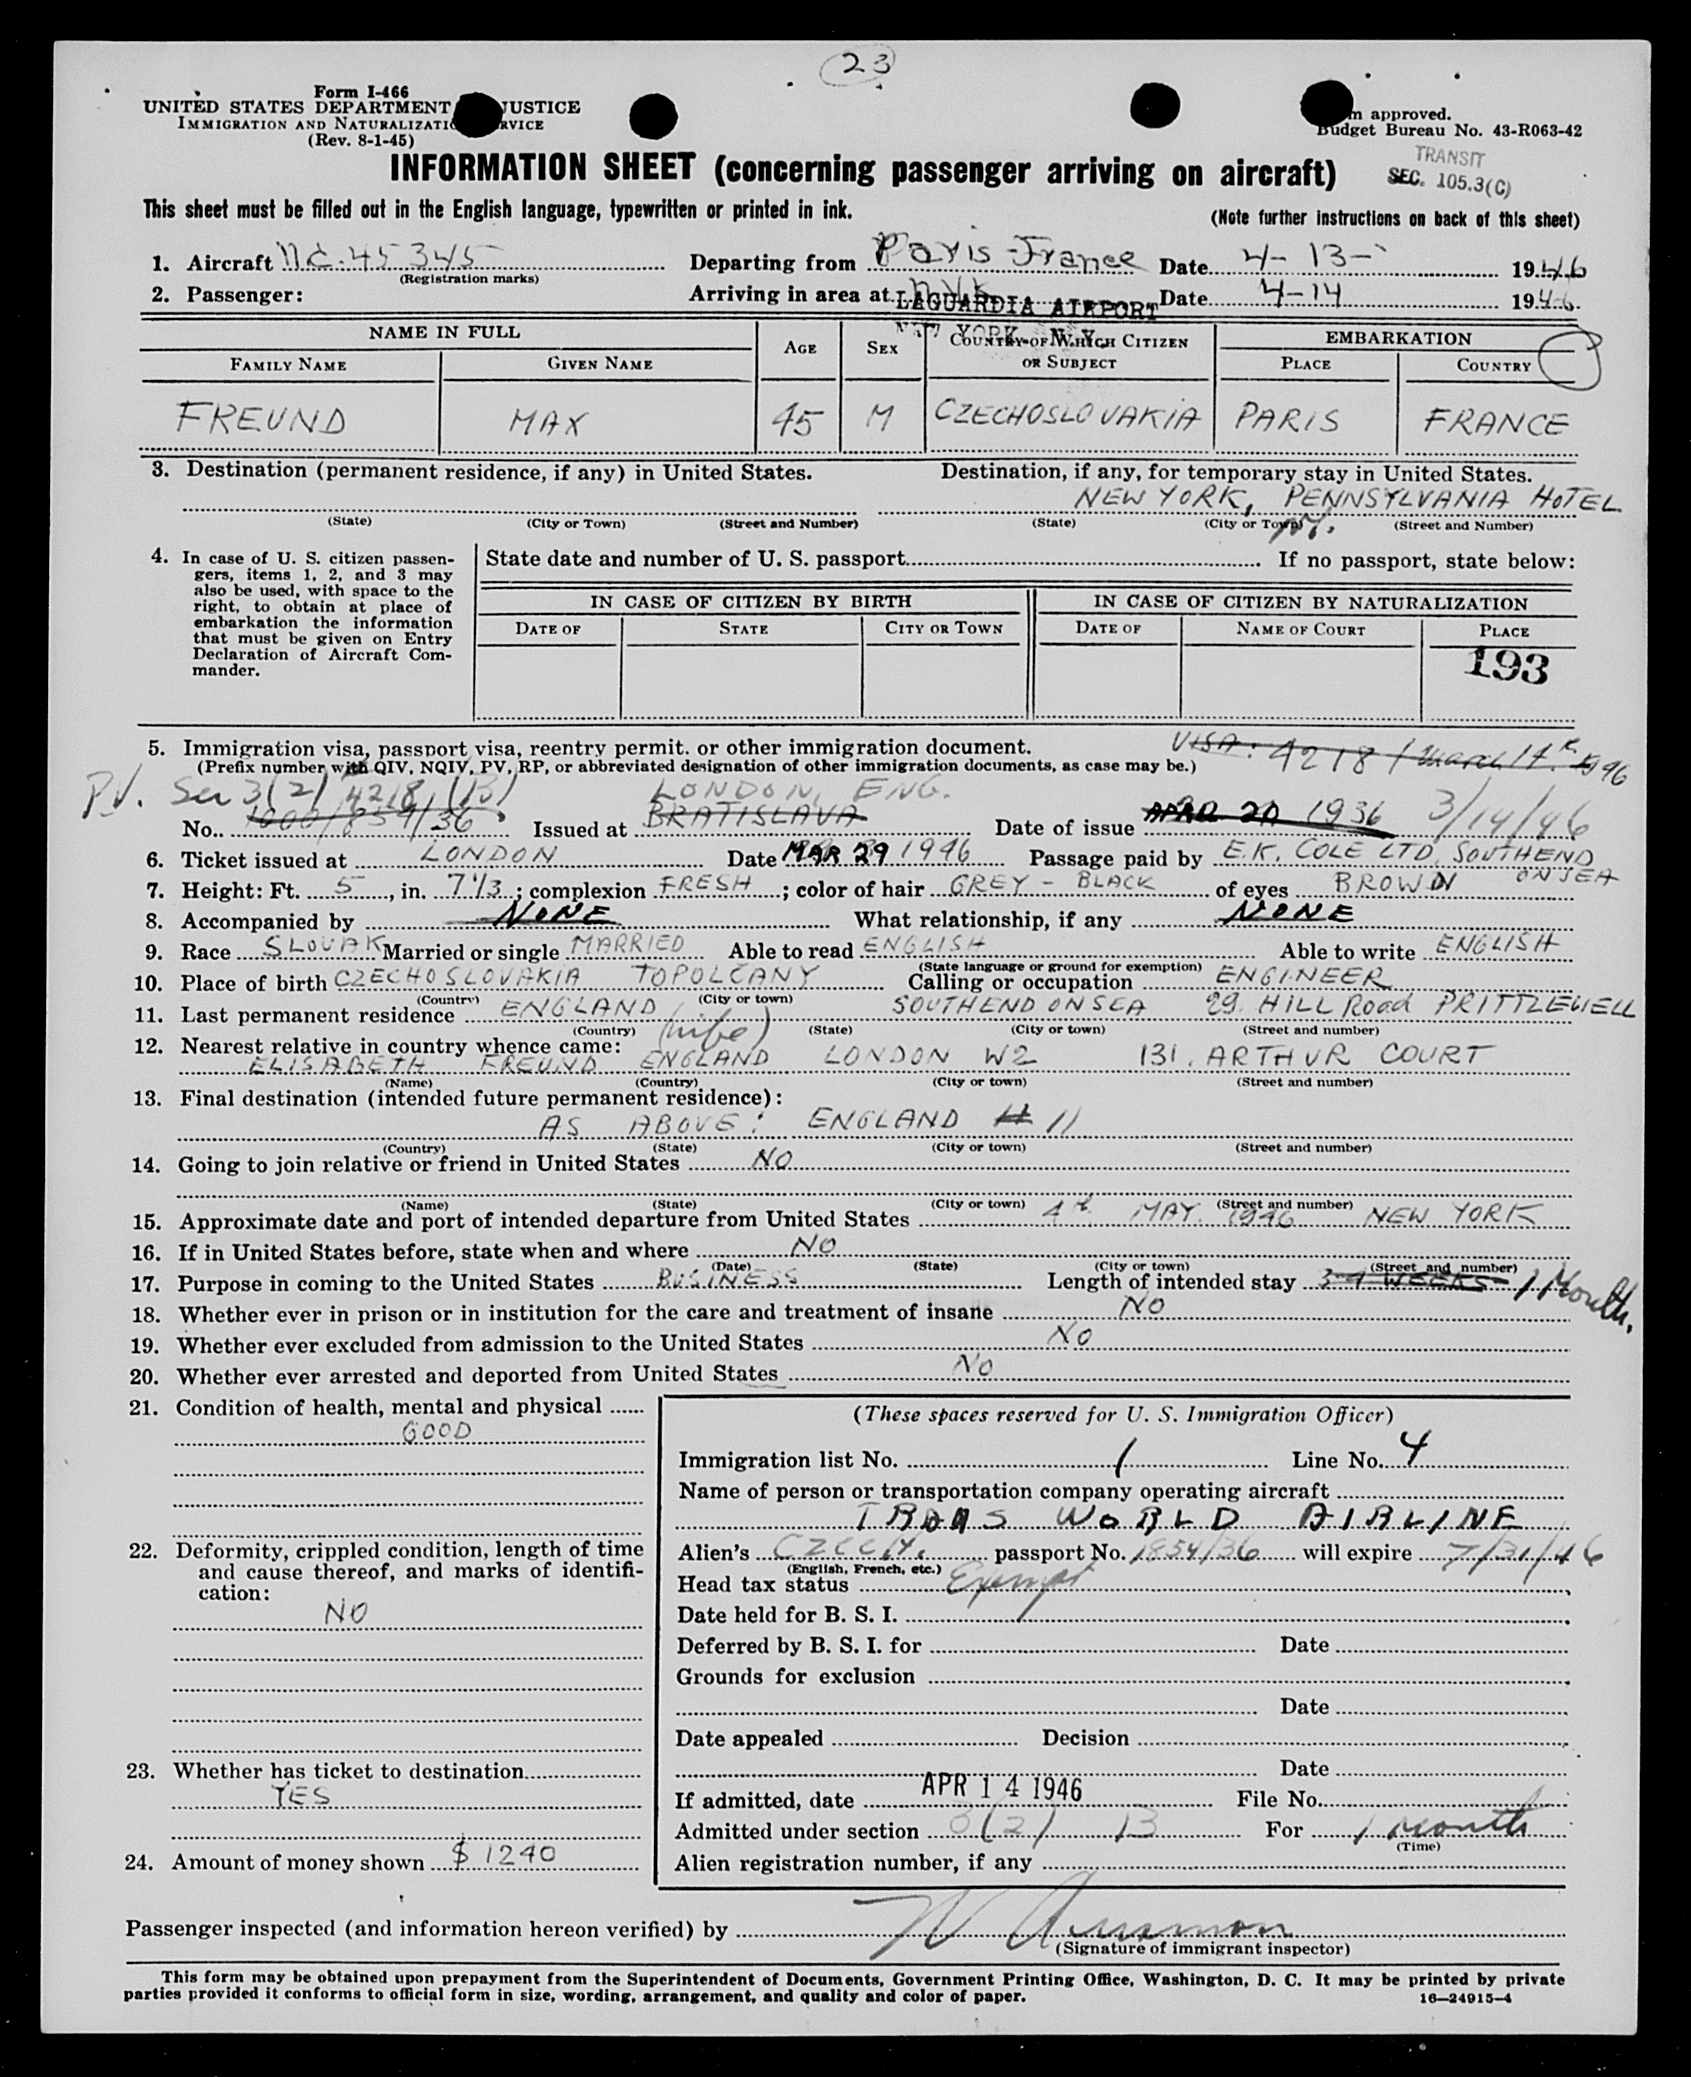 23
Form I-466
UNITED STATES DEPARTMENT JUSTICE
IMMIGRATION AND NATURALIZATIO RVICE
(Rev. 8-1-45)
m approved.
Budget Bureau No. 43-R063-42
TRANSIT
SEC. 105.3(C)
INFORMATION SHEET (concerning passenger arriving on aircraft)
This sheet must be filled out in the English language, typewritten or printed in ink.
(Note further instructions on back of this sheet)
1. Aircraft N.C. 45345 Departing from Paris France Date 4-13- 1946
(Registration marks)
2. Passenger: Arriving in area at N.Y. LAGUARDIA AIRPORT Date 4-14 1946.
NEW YORK, N.Y.
NAME IN FULL
FAMILY NAME GIVEN NAME AGE SEX COUNTRY OF WHICH CITIZEN OR SUBJECT EMBARKATION PLACE COUNTRY
FREUND MAX 45 M CZECHOSLOVAKIA PARIS FRANCE
3. Destination (permanent residence, if any) in United States. Destination, if any, for temporary stay in United States.
NEW YORK, PENNSYLVANIA HOTEL
(State) (City or Town) (Street and Number) (State) (City or Town) (Street and Number)
4. In case of U. S. citizen passengers, items 1, 2, and 3 may also be used, with space to the right, to obtain at place of embarkation the information that must be given on Entry Declaration of Aircraft Commander.
State date and number of U. S. passport If no passport, state below:
IN CASE OF CITIZEN BY BIRTH IN CASE OF CITIZEN BY NATURALIZATION
DATE OF STATE CITY OR TOWN DATE OF NAME OF COURT PLACE
193
5. Immigration visa, passport visa, reentry permit, or other immigration document. VISA: 4218 / March 14. 1946
(Prefix number with QIV, NQIV, PV, RP, or abbreviated designation of other immigration documents, as case may be.)
PV. Sec 3(2) 4218 (13) LONDON, ENG.
No. 1000/859/36 Issued at BRATISLAVA Date of issue APR 20 1936 3/14/46
6. Ticket issued at LONDON Date MAR 29 1946 Passage paid by E.K. COLE LTD. SOUTHEND ON SEA
7. Height: Ft. 5, in. 7 1/3; complexion FRESH; color of hair GREY - BLACK of eyes BROWN
8. Accompanied by NONE What relationship, if any NONE
9. Race SLOVAK Married or single MARRIED Able to read ENGLISH Able to write ENGLISH
(State language or ground for exemption)
10. Place of birth CZECHOSLOVAKIA TOPOLCANY Calling or occupation ENGINEER
(Country) (City or town)
11. Last permanent residence ENGLAND SOUTHEND ON SEA 29. HILL Road PRITTLEWELL
(Country) (State) (City or town) (Street and number)
12. Nearest relative in country whence came: (wife)
ELISABETH FREUND ENGLAND LONDON W2 131. ARTHUR COURT
(Name) (Country) (City or town) (Street and number)
13. Final destination (intended future permanent residence):
AS ABOVE: ENGLAND # 11
(Country) (State) (City or town) (Street and number)
14. Going to join relative or friend in United States NO
(Name) (State) (City or town) (Street and number)
15. Approximate date and port of intended departure from United States 4th MAY 1946 NEW YORK
16. If in United States before, state when and where NO
(Date) (State) (City or town) (Street and number)
17. Purpose in coming to the United States BUSINESS Length of intended stay 3-4 WEEKS 1 Month.
18. Whether ever in prison or in institution for the care and treatment of insane NO
19. Whether ever excluded from admission to the United States NO
20. Whether ever arrested and deported from United States NO
21. Condition of health, mental and physical
GOOD
22. Deformity, crippled condition, length of time and cause thereof, and marks of identification:
NO
23. Whether has ticket to destination
YES
24. Amount of money shown $ 1240
(These spaces reserved for U. S. Immigration Officer)
Immigration list No. 1 Line No. 4
Name of person or transportation company operating aircraft
TRANS WORLD AIRLINE
Alien's CZECH. passport No. 1854/36 will expire 7/31/46
(English, French, etc.)
Head tax status Exempt
Date held for B. S. I.
Deferred by B. S. I. for Date
Grounds for exclusion
Date
Date appealed Decision
Date
If admitted, date APR 14 1946 File No.
Admitted under section 3(2) 13 For 1 Month
(Time)
Alien registration number, if any
Passenger inspected (and information hereon verified) by
(Signature of immigrant inspector)
This form may be obtained upon prepayment from the Superintendent of Documents, Government Printing Office, Washington, D. C. It may be printed by private
parties provided it conforms to official form in size, wording, arrangement, and quality and color of paper.
16—24915-4